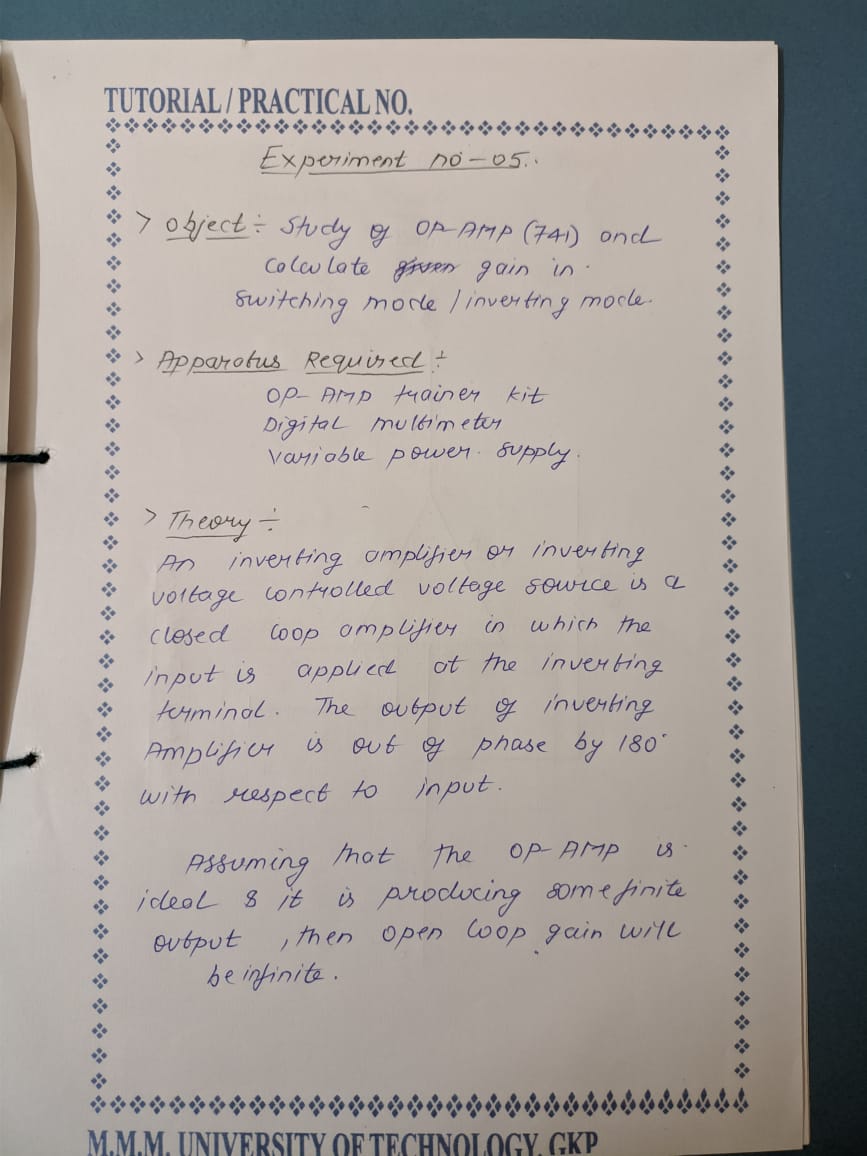 TUTORIAL / PRACTICAL NO.
Experiment no - 05.
> Object ÷ Study of OP-AMP (741) and
Calculate gain in
switching mode / inverting mode.
> Apparatus Required ÷
OP-AMP trainer kit
Digital multimeter
Variable power supply.
> Theory ÷
An inverting amplifier or inverting
voltage controlled voltage source is a
closed loop amplifier in which the
input is applied at the inverting
terminal. The output of inverting
Amplifier is out of phase by 180°
with respect to input.
Assuming that the OP-AMP is
ideal & it is producing some finite
output , then open loop gain will
be infinite.
M.M.M. UNIVERSITY OF TECHNOLOGY, GKP